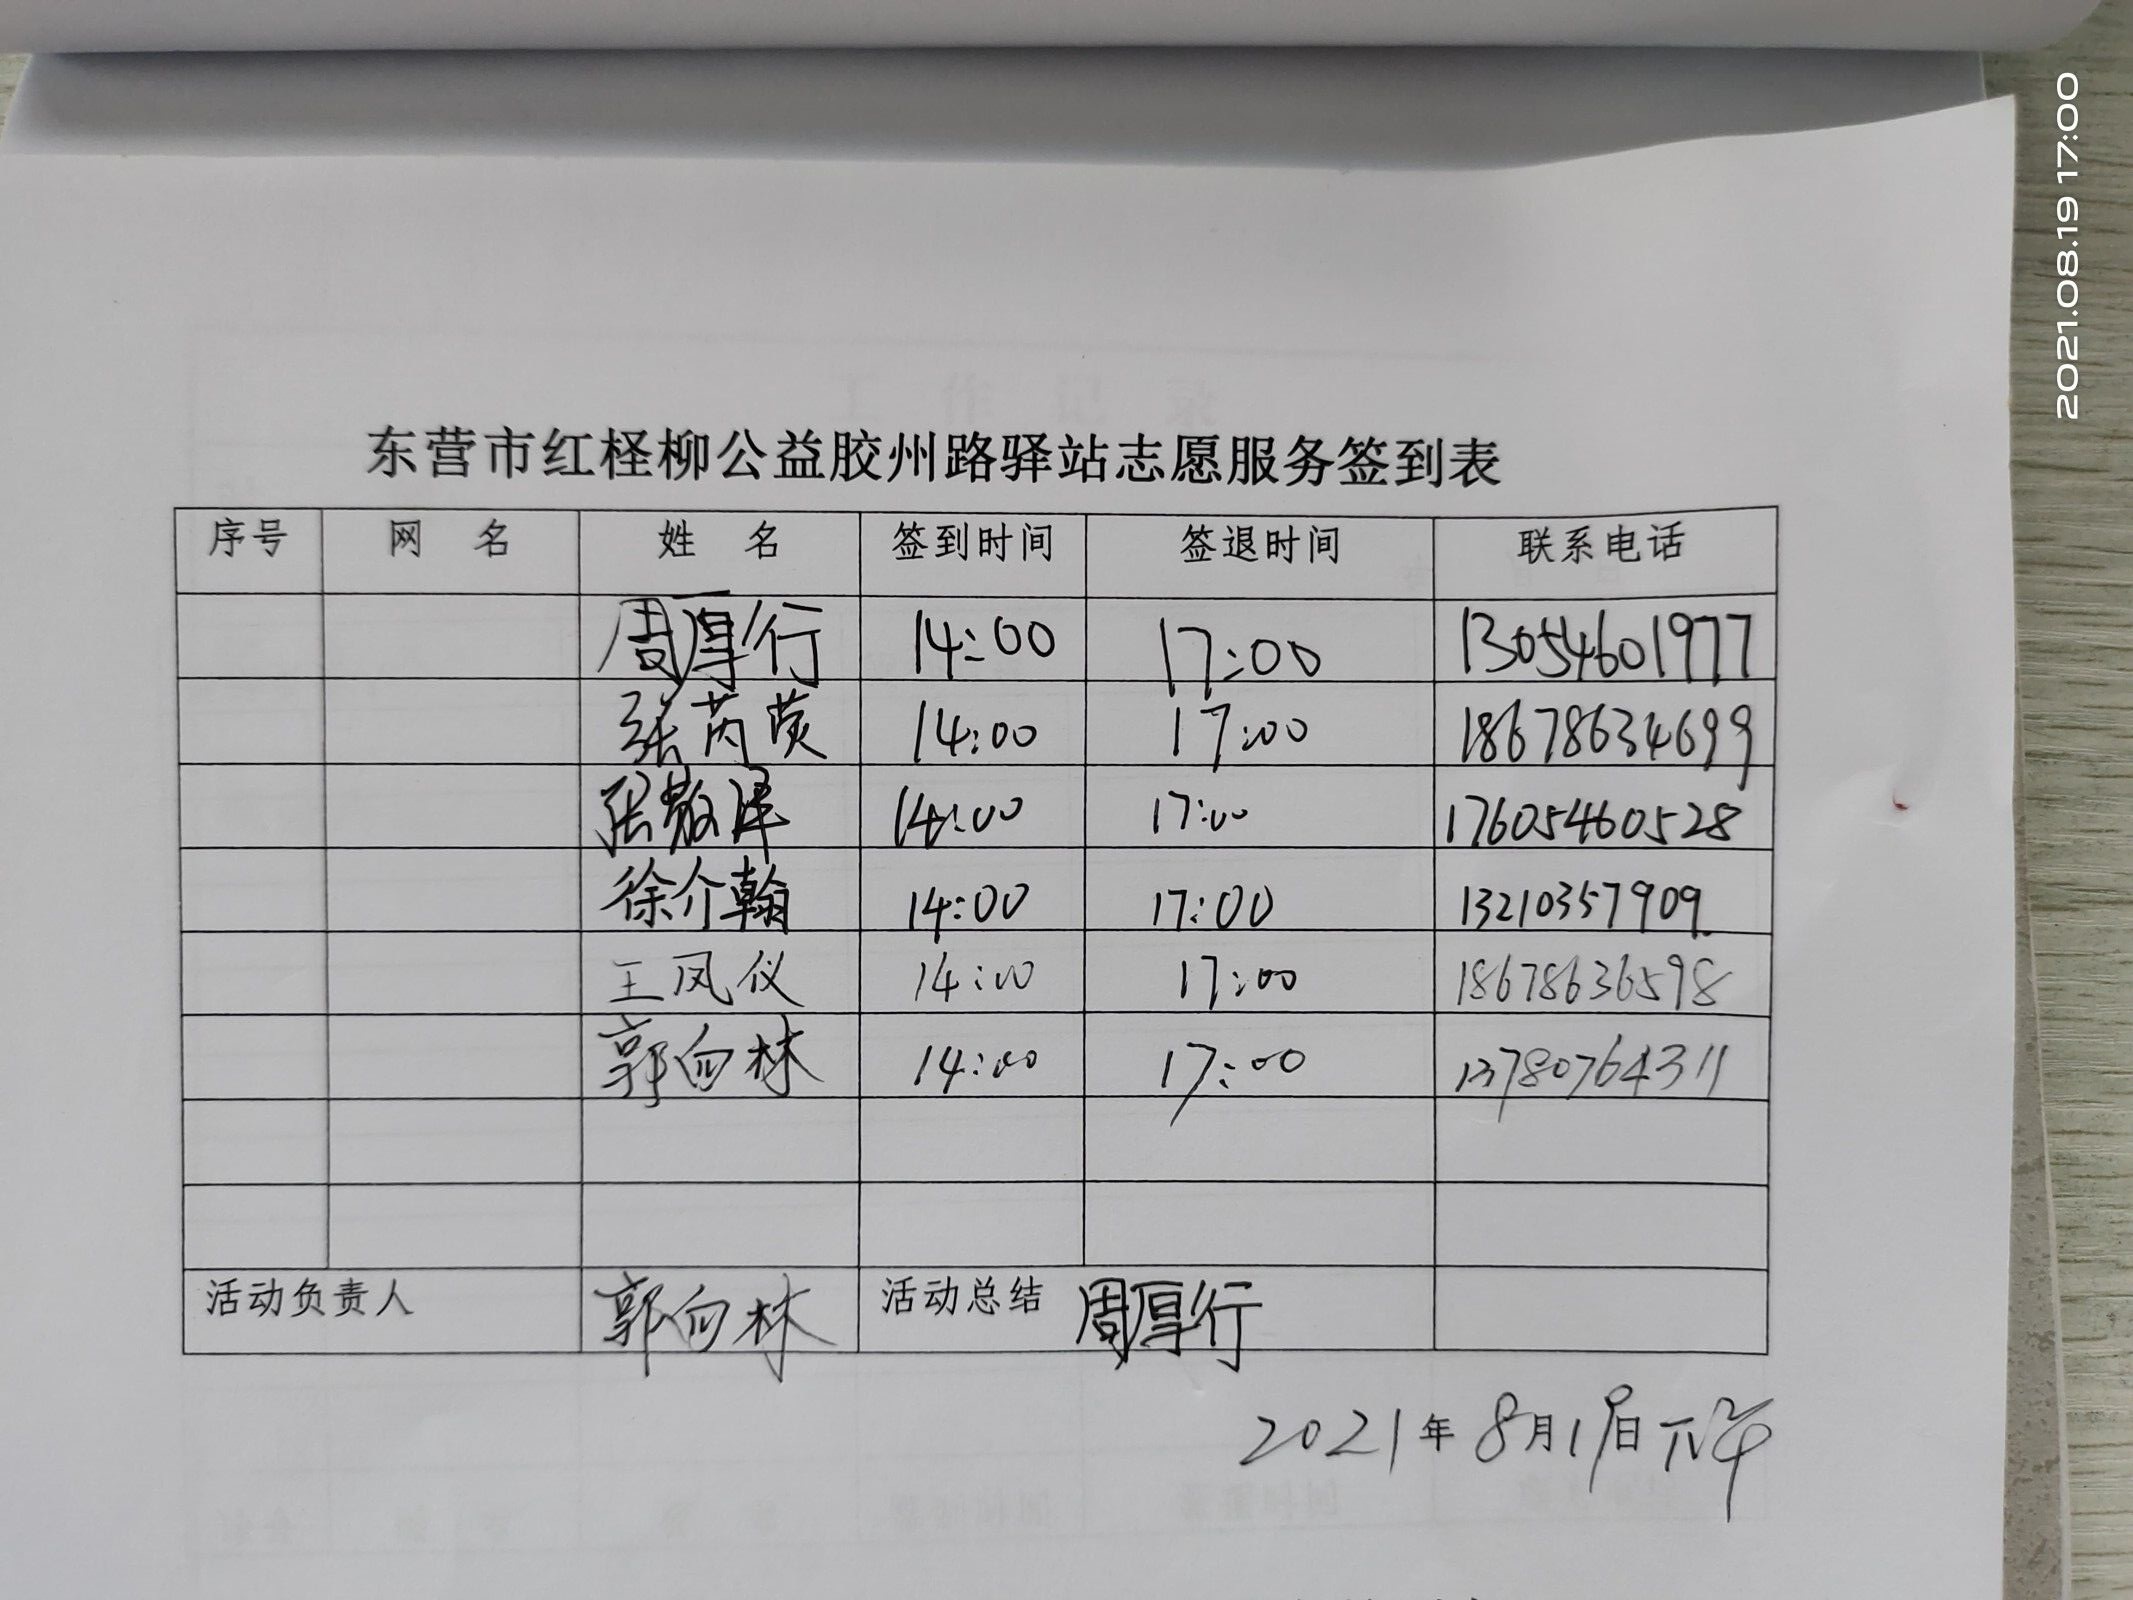 2021.08.19 17:00
东营市红柽柳公益胶州路驿站志愿服务签到表
序号 网 名 姓 名 签到时间 签退时间 联系电话
周厚行 14:00 17:00 13054601977
张芮荧 14:00 17:00 18678634699
张敬泽 14:00 17:00 17605460528
徐介翰 14:00 17:00 13210357909
王凤仪 14:00 17:00 18678636598
郭向林 14:00 17:00 13780764311
活动负责人 郭向林 活动总结 周厚行
2021年8月19日下午